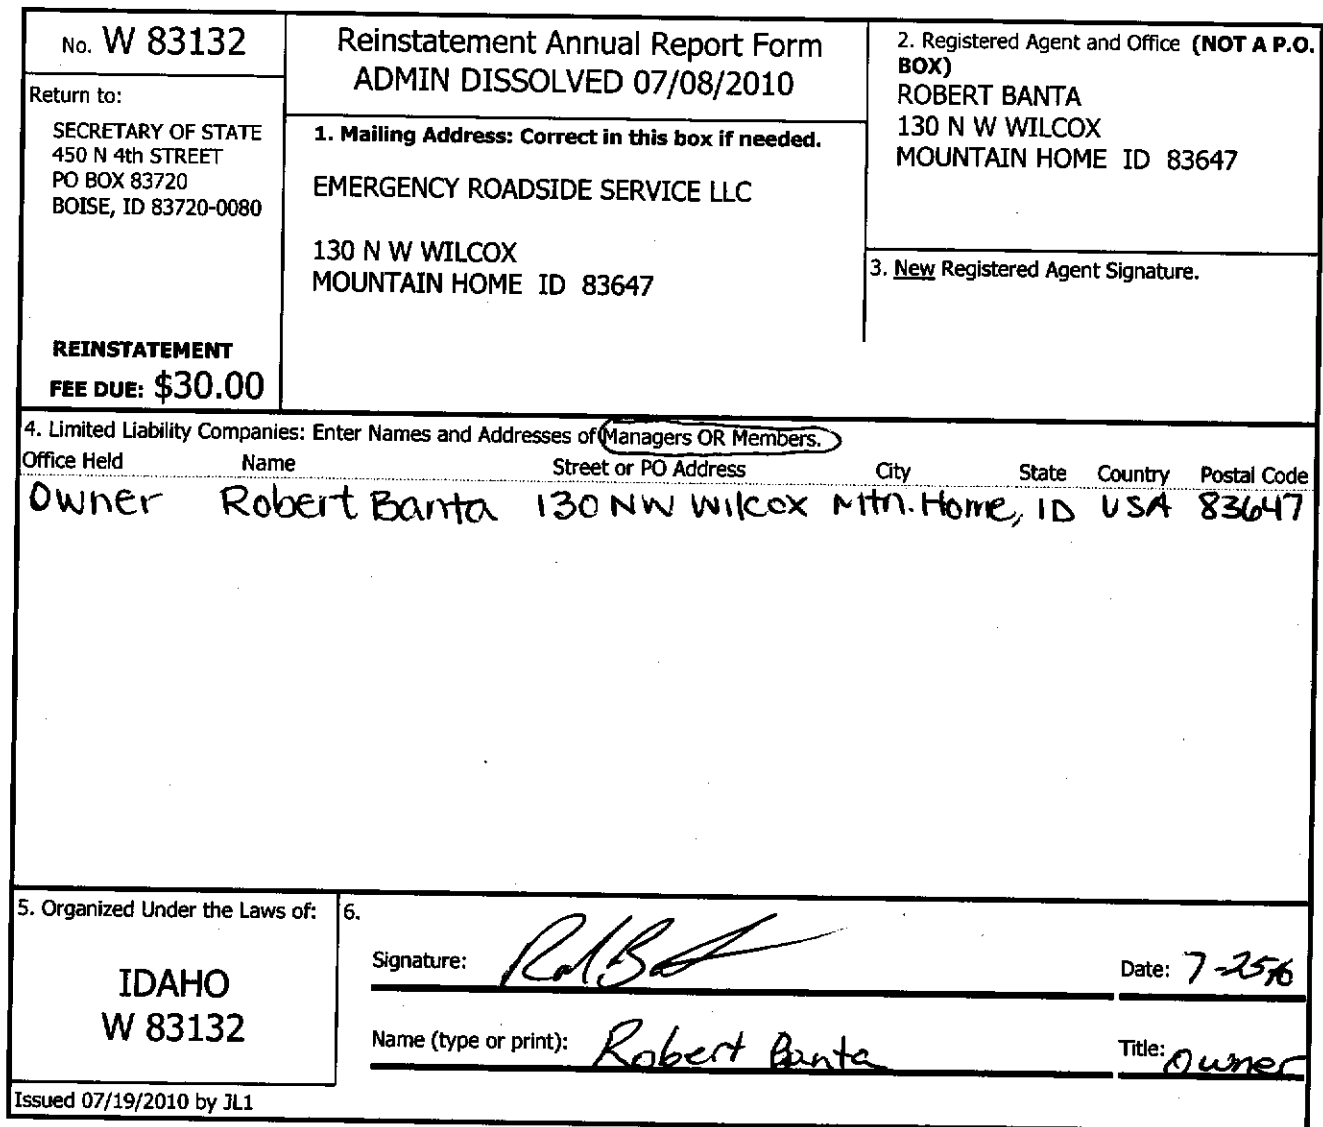 No. W 83132
Return to:
SECRETARY OF STATE
450 N 4th STREET
PO BOX 83720
BOISE, ID 83720-0080
REINSTATEMENT
FEE DUE: $30.00
Reinstatement Annual Report Form
ADMIN DISSOLVED 07/08/2010
1. Mailing Address: Correct in this box if needed.
EMERGENCY ROADSIDE SERVICE LLC
130 N W WILCOX
MOUNTAIN HOME ID 83647
2. Registered Agent and Office (NOT A P.O.
BOX)
ROBERT BANTA
130 N W WILCOX
MOUNTAIN HOME ID 83647
3. New Registered Agent Signature.
4. Limited Liability Companies: Enter Names and Addresses of Managers OR Members.
Office Held Name Street or PO Address City State Country Postal Code
Owner Robert Banta 130 NW Wilcox Mtn. Home, ID USA 83647
5. Organized Under the Laws of:
IDAHO
W 83132
6.
Signature:
Date: 7-25
Name (type or print): Robert Banta
Title: Owner
Issued 07/19/2010 by JL1